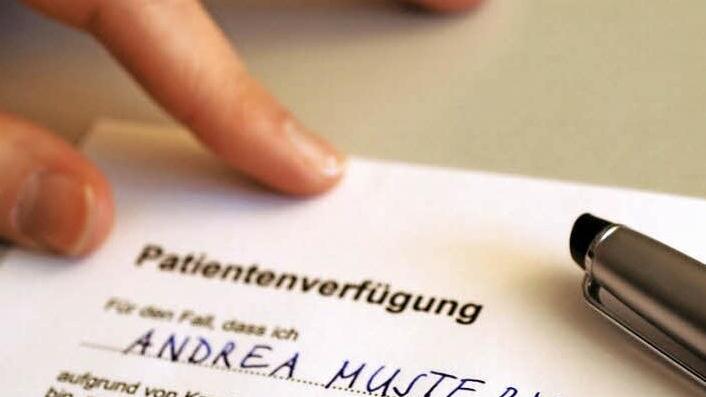 Patientenverfügung
Für den Fall, dass ich
ANDREA
aufgrund von